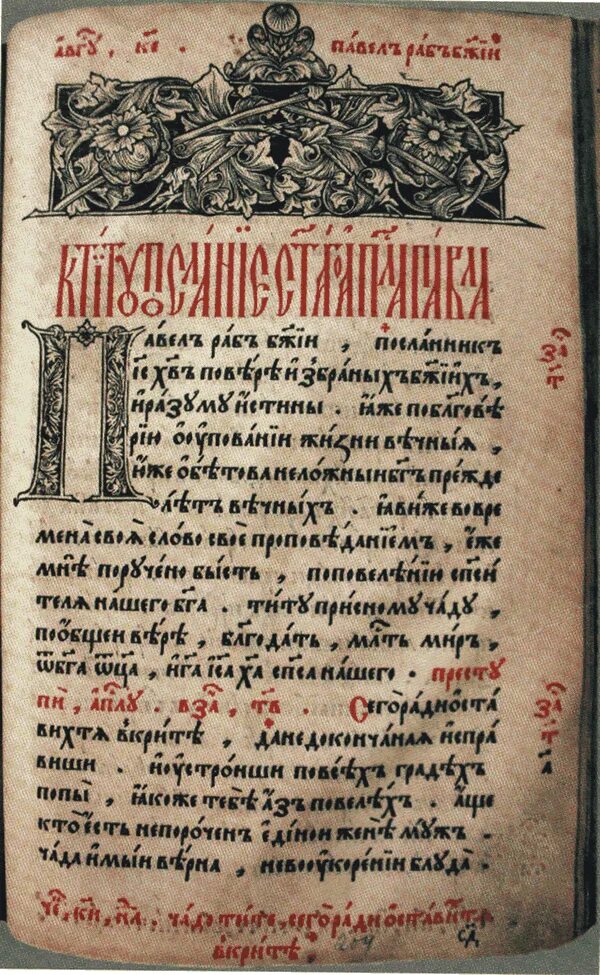 авгꙋ , ке . павелъ рабъ бжїи
К ти́тꙋ посла́нїе ст҃а́го ап҃ла па́вла
Па́велъ ра́бъ бж҃їи , посла́нникъ
і҆с хв҃ъ повѣ́рѣ и҆збра́ныхъ бж҃їихъ ,
и҆ра́зꙋмꙋ и҆́стины . ꙗ҆́же поблгⷭ҇овѣ́
рїю ѻ҆ оу҆пова́нїи жи́зни вѣ́чныѧ ,
и҆́же ѻ҆бѣтова нело́жныи бг҃ъ пре́жде
лѣ́тъ вѣ́чныхъ . ꙗ҆ви́же вовре
мена̀ своѧ̀ сло́во своѐ проповѣ́данїемъ , є҆́же
мнѣ̀ порꙋ́чено бы́сть , поповелѣ́нїю спⷭ҇и
телѧ на́шего бг҃а . ти́тꙋ при́сномꙋ ча́дꙋ ,
поо́бщеи вѣ́рѣ , блгⷣа́ть , млⷭ҇ть ми́ръ ,
ѿ бг҃а ѿц҃а̀ , и҆ га҃ і҆са ха҃ спⷭ҇а на́шего . престꙋ
пѝ , а҆пⷭ҇лꙋ . вза , тв . Сегѡ̀ ра́ди ѻ҆ста
вихтѧ вкри́тѣ , да недоконча́наѧ и҆спра́
виши . и҆ оу҆стро́иши повсѣ́хъ гра́дѣхъ
попы̀ , ꙗ҆́коже тебѣ̀ а҆́зъ повелѣ́хъ . а҆́ще
кто̀ є҆́сть непоро́ченъ є҆ди́нои женѣ̀ мꙋ́жъ .
ча́да и҆мы́и вѣ́рна , невооу҆коре́нїи блꙋда̀ .
за
т
за
т
а
ча́до ти́те , сегѡ̀ ра́ди ѻ҆ста́вихтѧ
вкри́тѣ .
204
сд